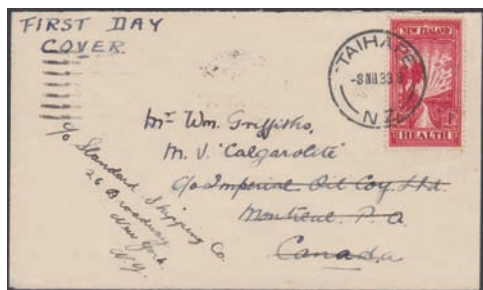 FIRST DAY
COVER
TAIHAPE
N.Z.
NEW ZEALAND
HEALTH
Mr Wm. Griffiths,
M.V. "Calgarolite"
c/o Imperial Oil Coy. Ltd.
Montreal. P.Q.
Canada
c/o Standard Shipping Co.
26 Broadway
New York.
N.Y.